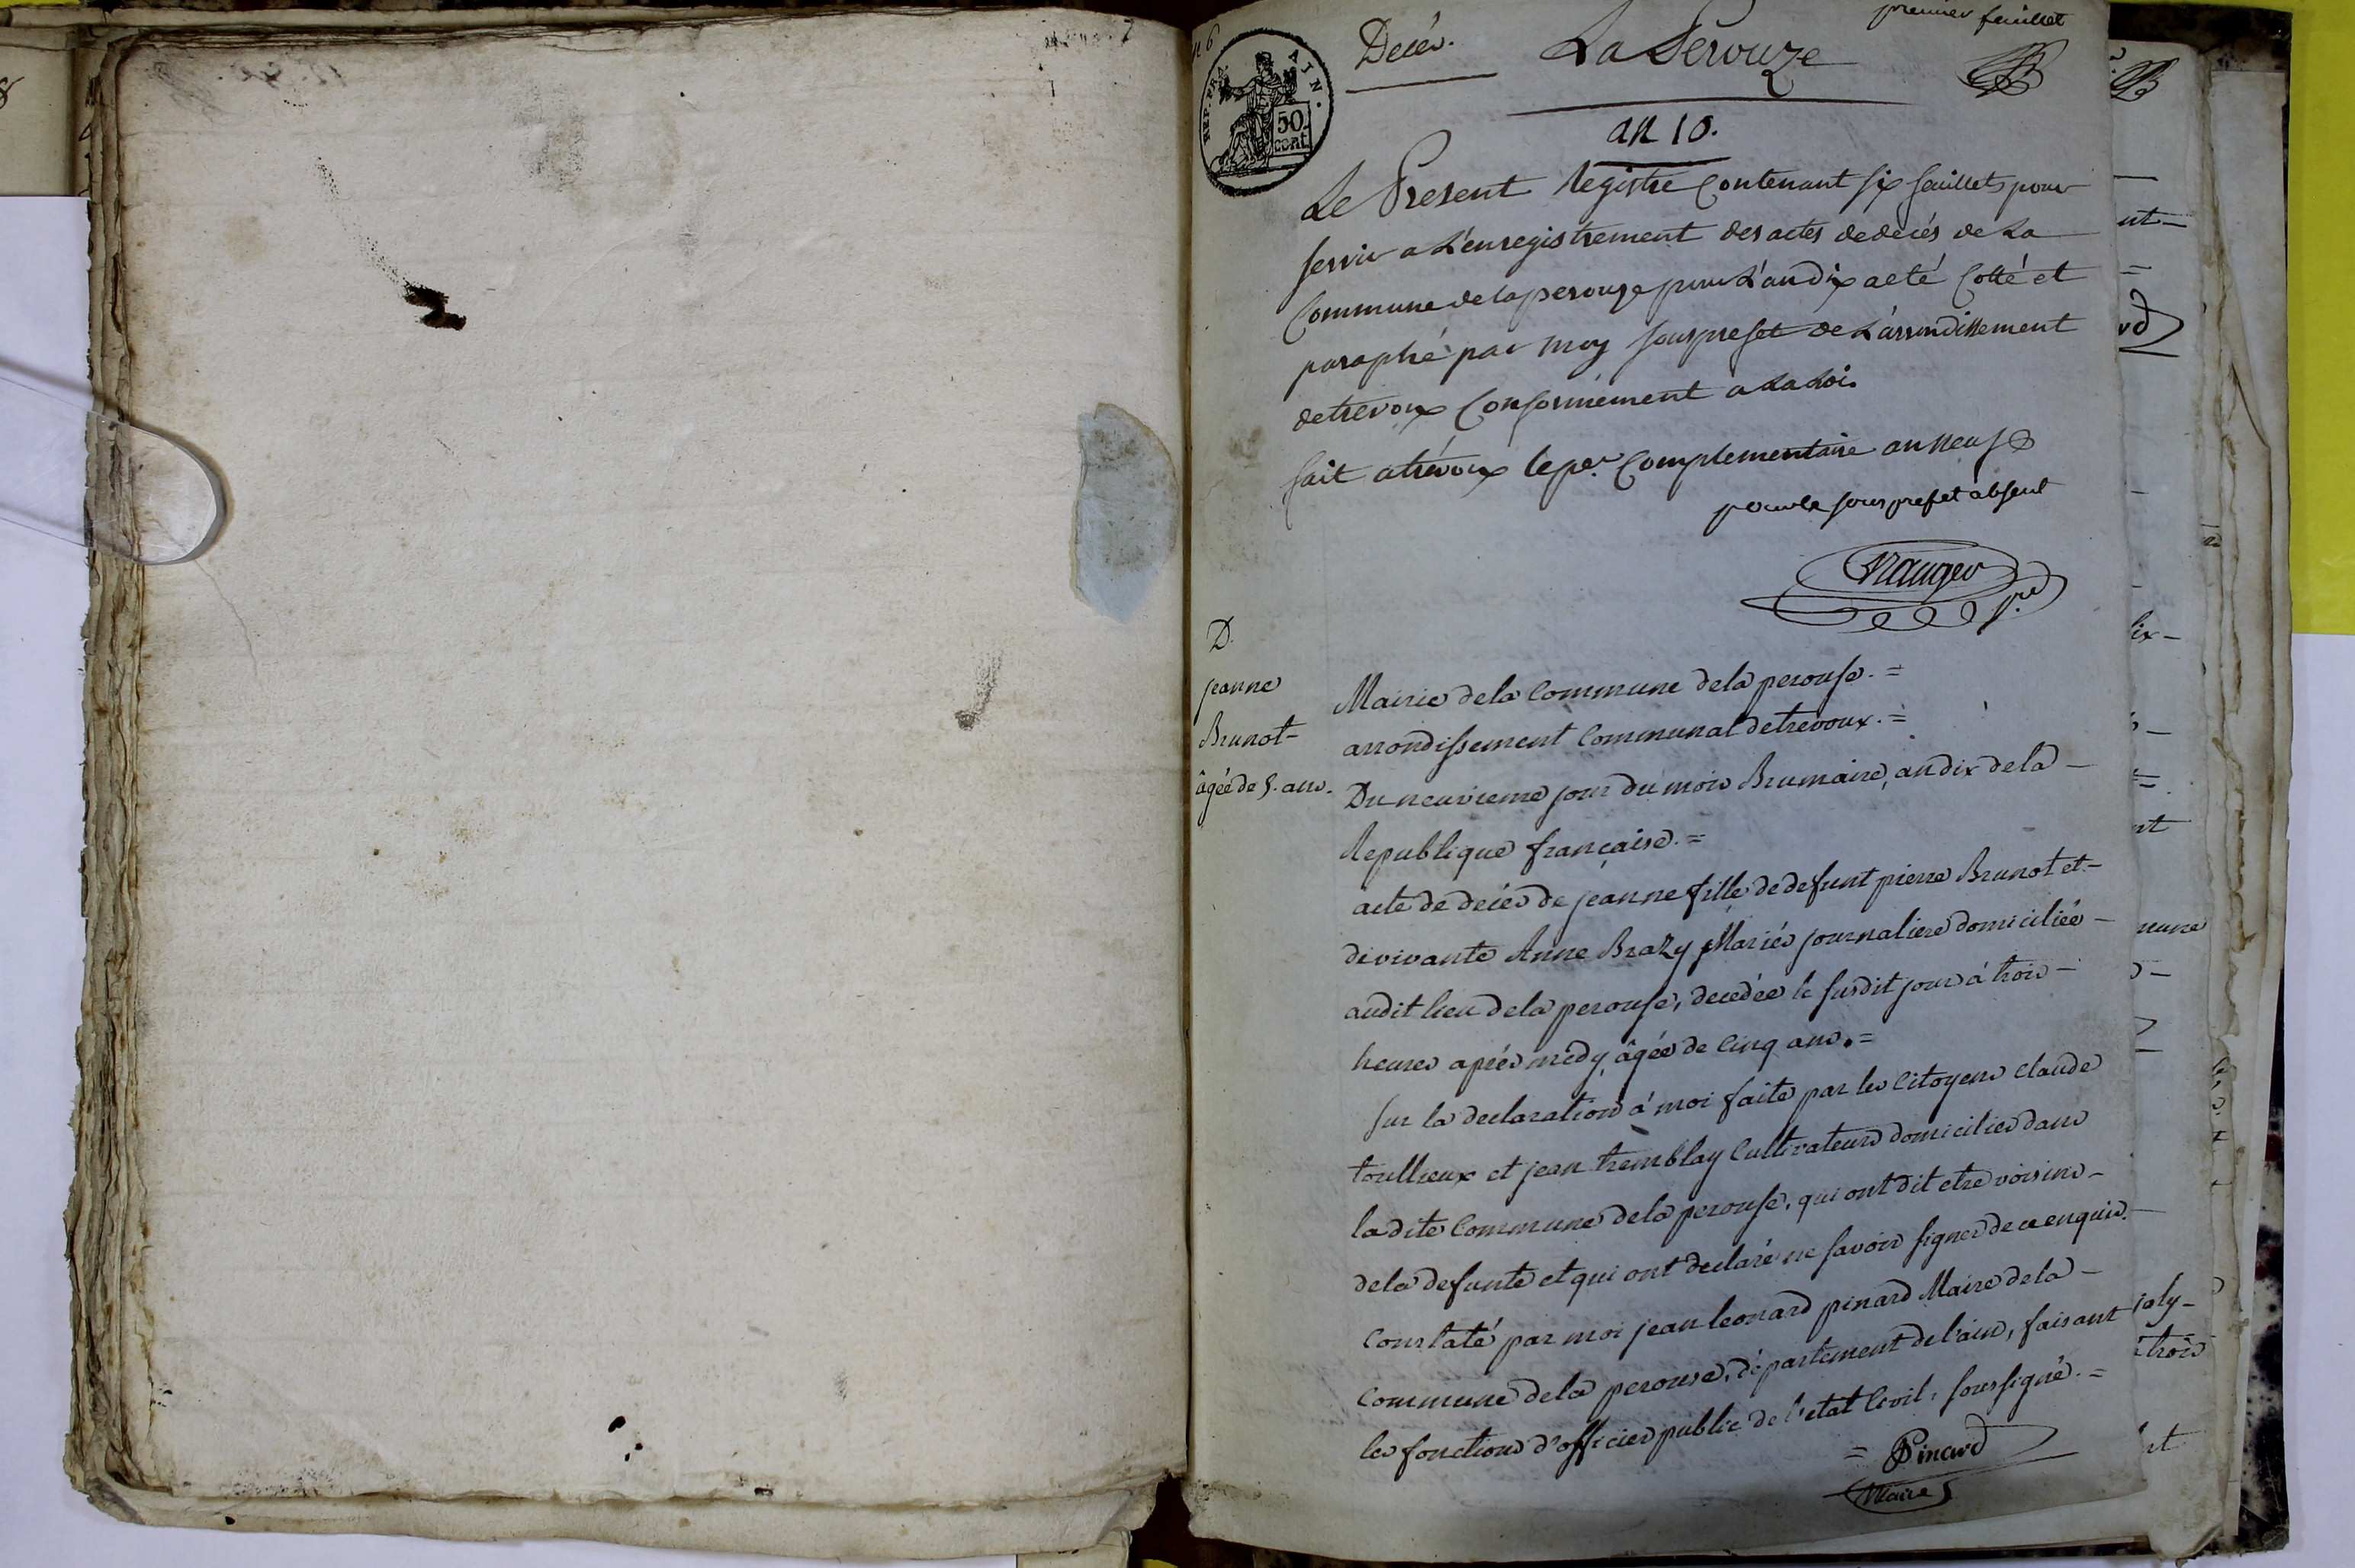 premier feuillet
Decés. La Perouze
REP. FRA. AIN.
50 cent
an 10.
Le Present Registre Contenant six feuillets pour
servir a L'enregistrement des actes de decés de La
Commune de la perouze pour L'an dix a eté Cotté et
paraphé par moy sousprefet de L'arrondissement
de trevoux Conformément a La Loi.
fait a trévoux le per. Complementaire an neuf
pour le sous prefet absent
D.
jeanne
Brunot-
âgée de 5. ans.
Mairie de la Commune de la perouse. =
arrondissement Communal de trevoux. =
Du neuvieme jour du mois Brumaire, an dix de la -
Republique française. =
acte de decés de jeanne fille de defunt pierre Brunot et -
de vivante Anne Brazy Mariés journaliere domiciliée -
audit lieu de la perouse, decedée le susdit jour à trois -
heures aprés midy, âgée de Cinq ans. =
sur la declaration à moi faite par les Citoyens Claude
toullieux et jean tremblay Cultivateurs domiciliés dans
la dite Commune de la perouse, qui ont dit etre voisins -
de la defunte et qui ont declaré ne savoir signer de ce enquis. -
Constaté par moi jean leonard pinard Maire de la -
Commune de la perouse, département de l'ain, faisant
les fonctions d'officier public de l'etat Civil, soussigné. =
= Pinard
Maire